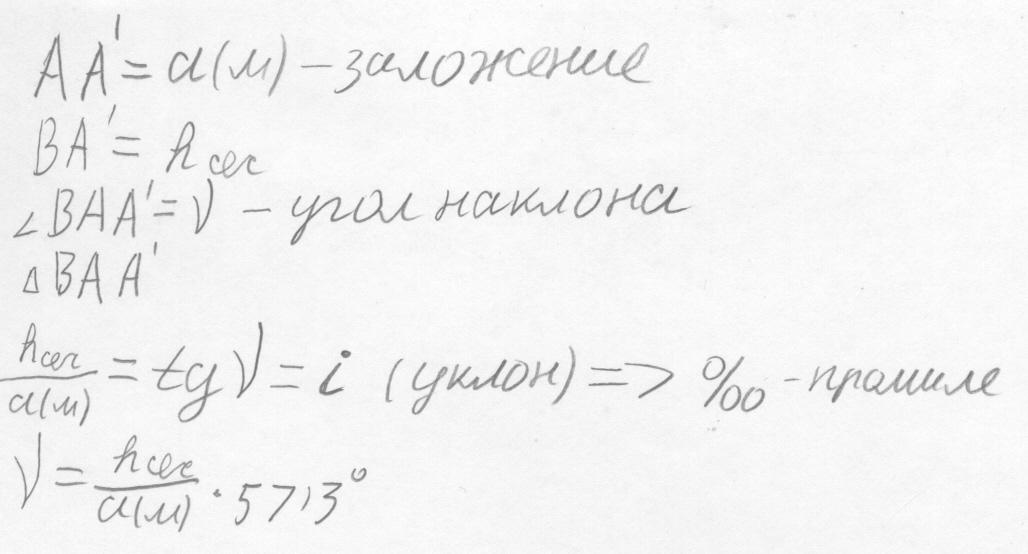 AA' = a(м) – заложение
BA' = hсеч
∠BAA' = ν – угол наклона
△BAA'
hсеч/a(м) = tg ν = i (уклон) => ‰ - промиле
ν = hсеч/a(м) · 57,3°